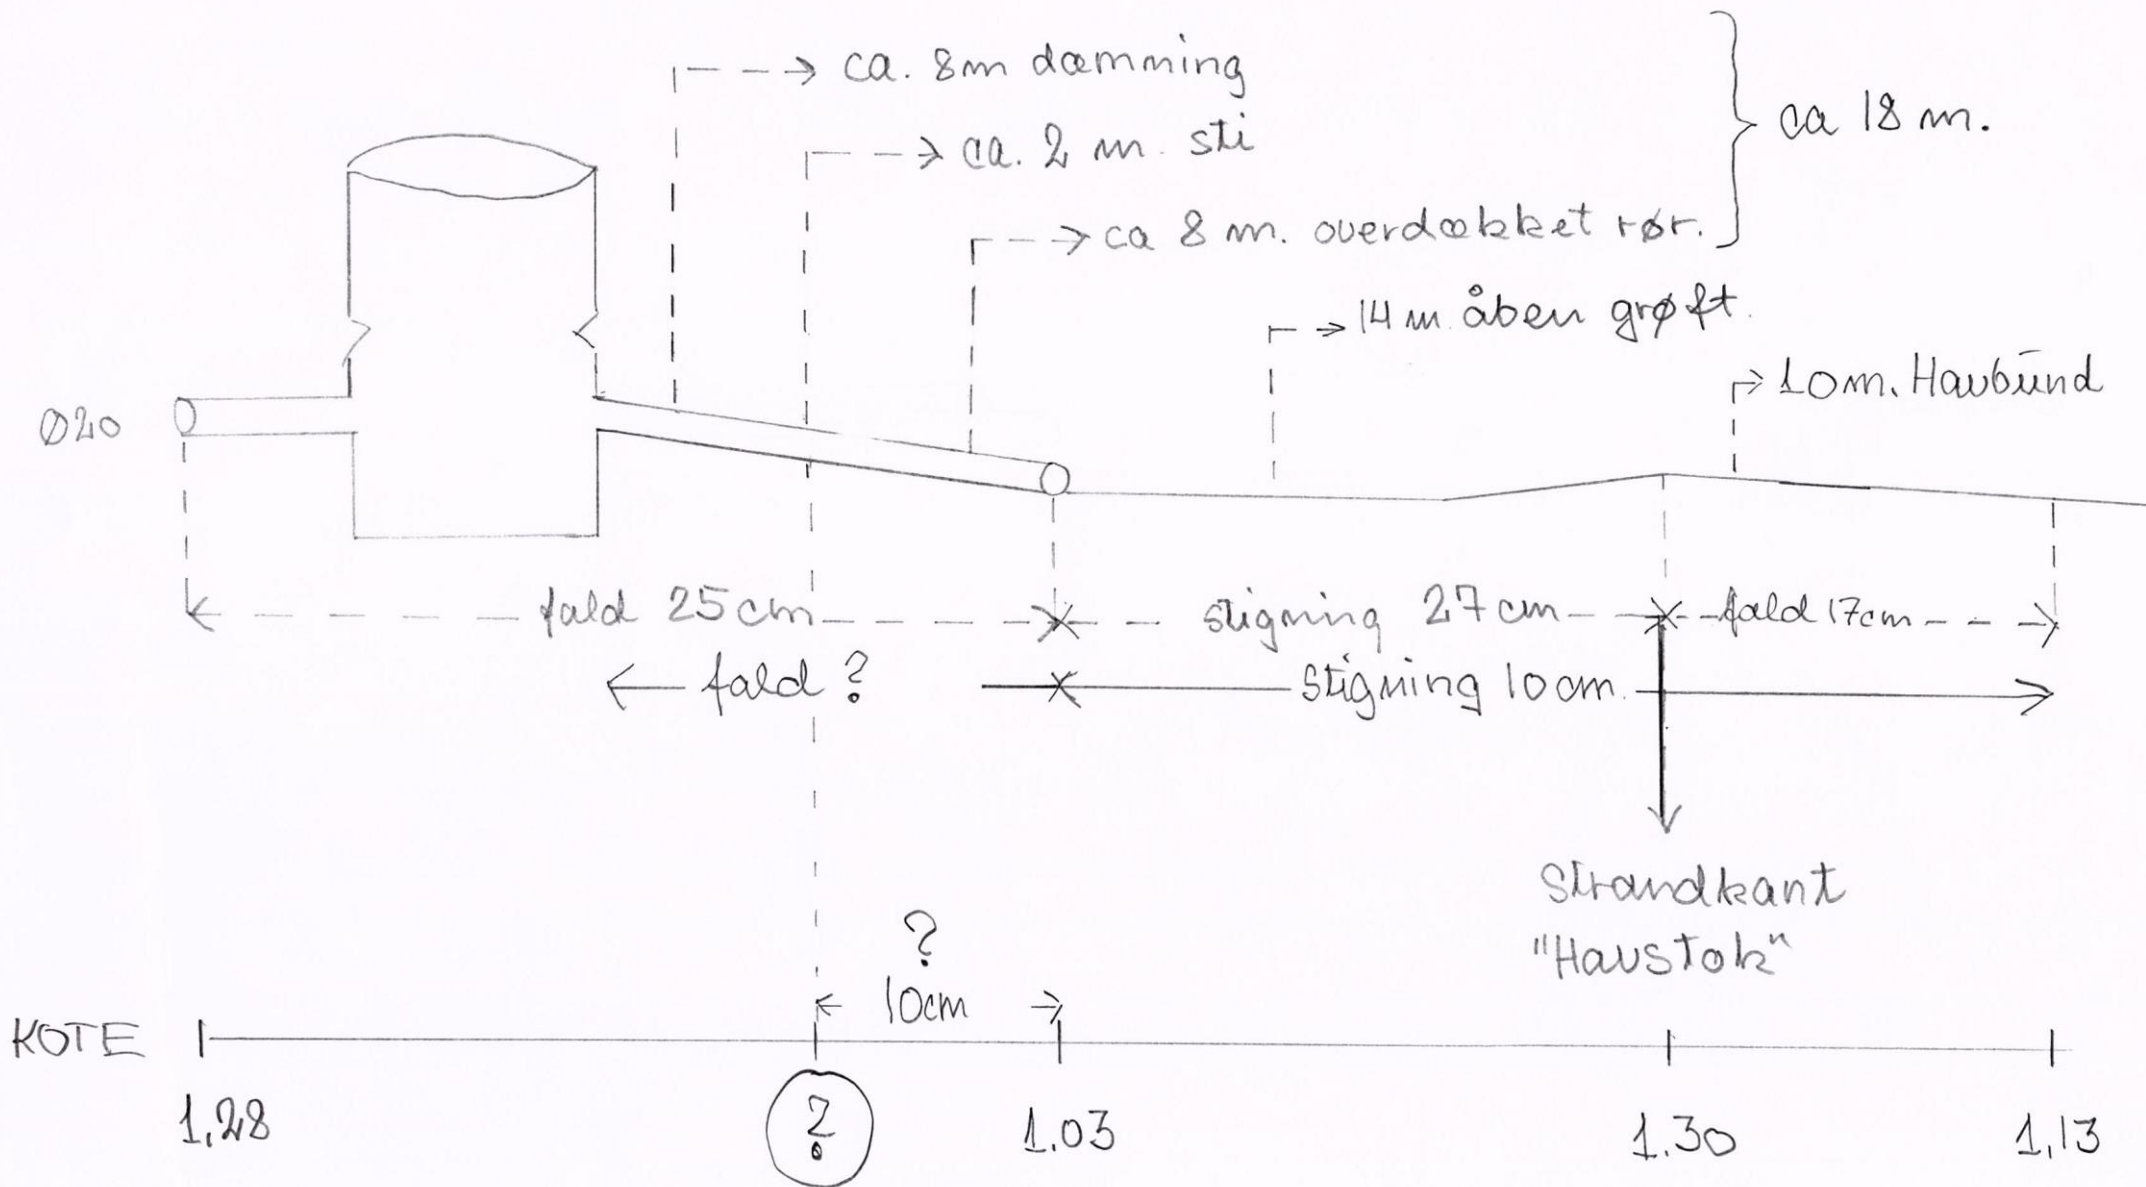 ca. 8m dæmning
ca. 2 m. sti
ca 18 m.
ca 8 m. overdækket rør.
14 m. åben grøft.
10m. Havbund
Ø20
fald 25 cm
stigning 27 cm
fald 17cm
fald ?
stigning 10 cm.
Strandkant
"Havstok"
?
10cm
KOTE
1,28
?
1.03
1.30
1,13